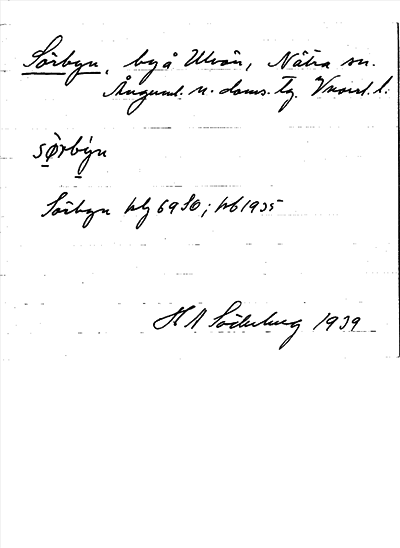 Sörbyn, by å Ulvön, Nätra sn.
Ångerml. n. doms. Tg. Vnorrl. l.
sörbyn
Sörbyn blz 69 SO; hb 1935
H A Söderberg 1939